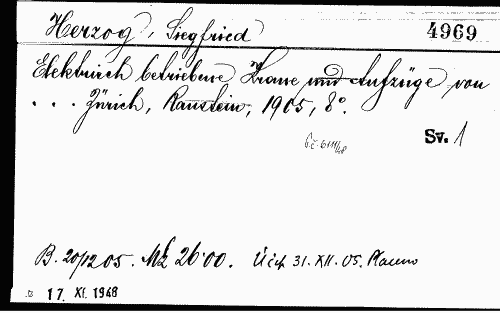 Herzog, Siegfried
4969
Elektrisch betriebene Krane und Aufzüge von
. . . Zürich, Raustein, 1905, 8°.
Sv. 1
B. 20/12 05. Mk 26·00. Účt. 31. XII. 05. Placeno
17. XI. 1948